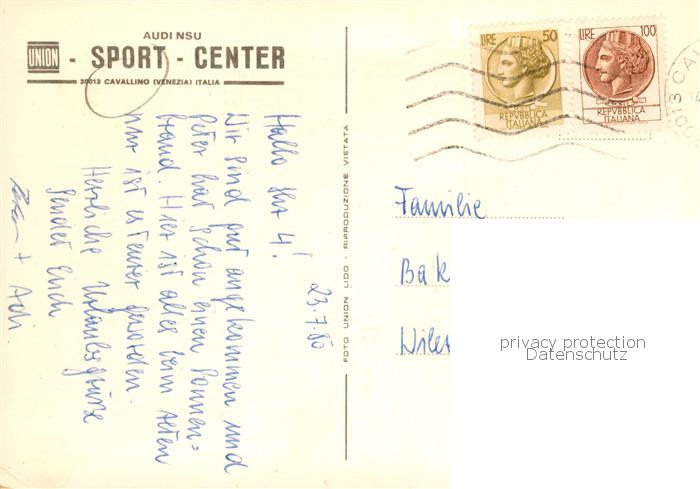 AUDI NSU
UNION - SPORT - CENTER
30013 CAVALLINO (VENEZIA) ITALIA
23.7.80
Hallo Ihr 4!
Wir sind gut angekommen und
Peter hat schon einen Sonnen=
brand. Hier ist alles beim Alten
nur ist es teurer geworden.
Herzliche Urlaubsgrüße
sendet Euch
+
FOTO UNION LIDO - RIPRODUZIONE VIETATA
LIRE 50
REPVBBLICA
ITALIANA
LIRE 100
REPVBBLICA
ITALIANA
Familie
Bak
privacy protection
Datenschutz